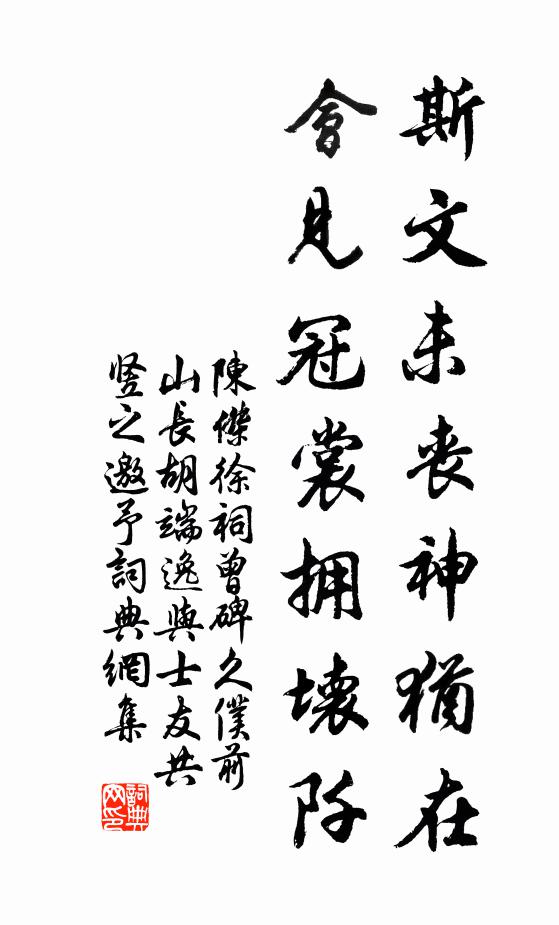 斯文未丧神猶在
會見冠裳拥壊阡
陳傑徐祠曾碑久僕前
山長胡端逸與士友共
竖之邀予詞典網集
詞典网印